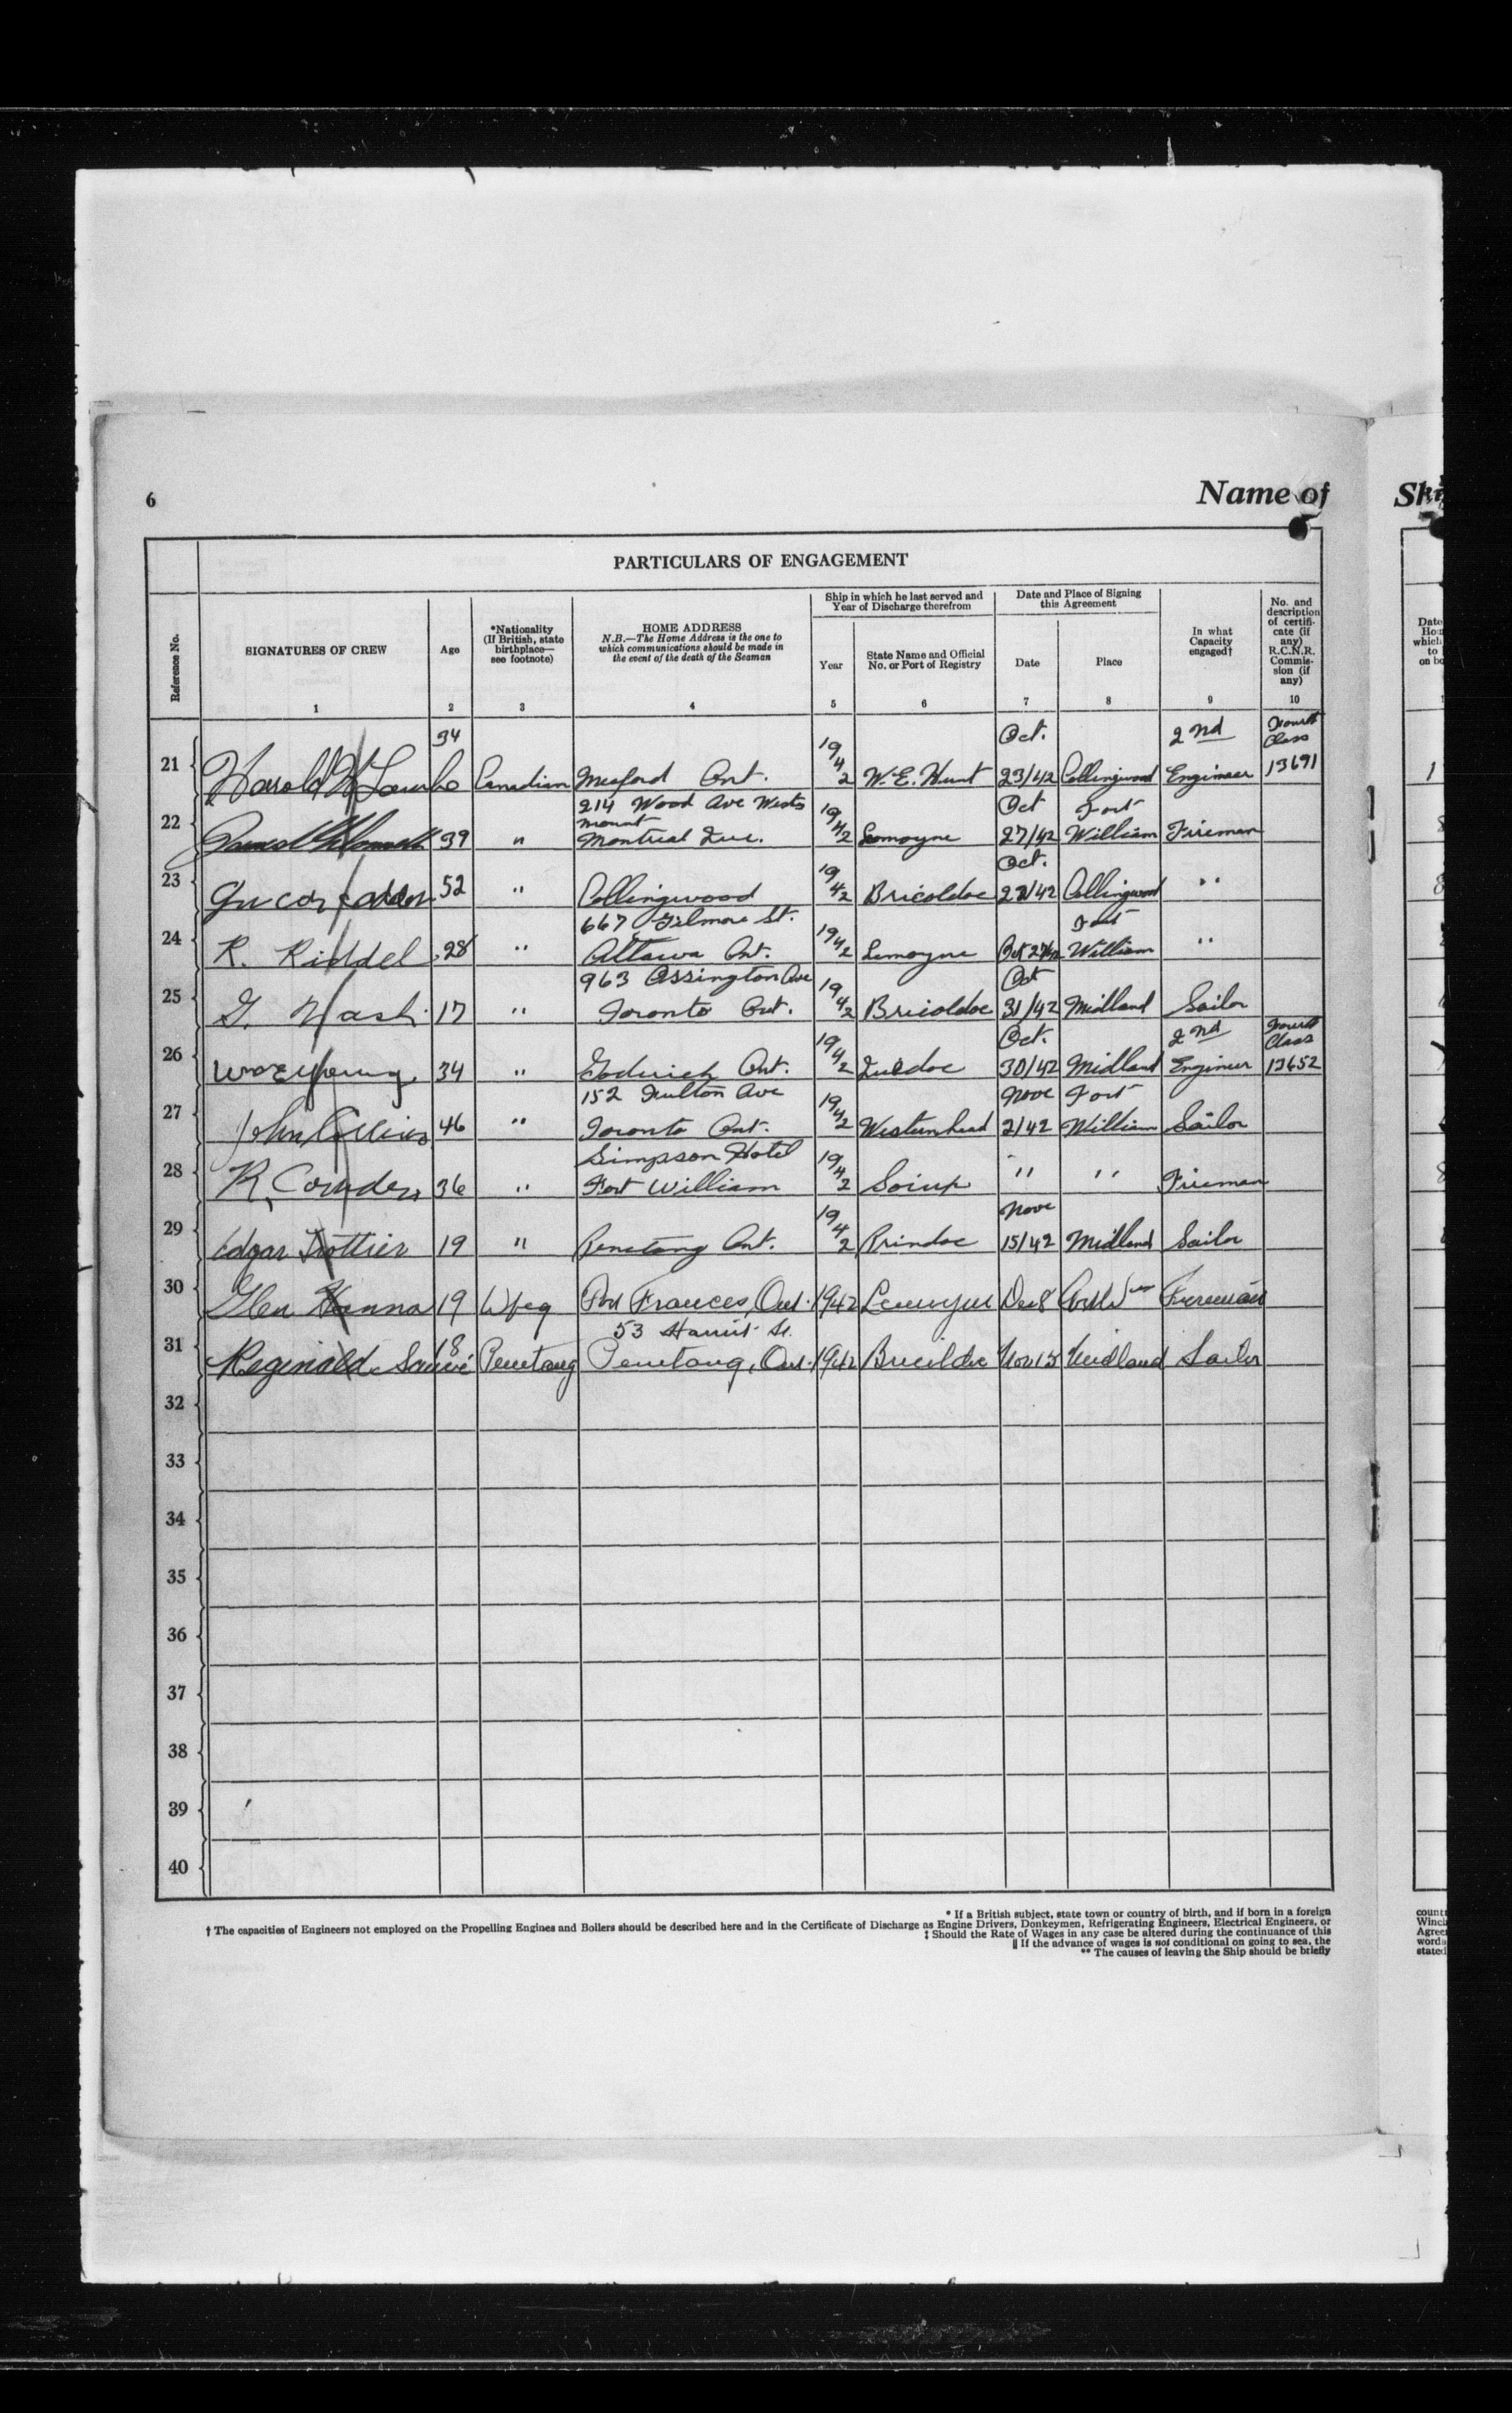 6
Name of
Shi
PARTICULARS OF ENGAGEMENT
Reference No.
SIGNATURES OF CREW
Age
*Nationality (If British, state birthplace— see footnote)
HOME ADDRESS
N.B.—The Home Address is the one to which communications should be made in the event of the death of the Seaman
Ship in which he last served and Year of Discharge therefrom
Year
State Name and Official No. or Port of Registry
Date and Place of Signing this Agreement
Date
Place
In what Capacity engaged†
No. and description of certificate (if any) R.C.N.R. Commission (if any)
1 2 3 4 5 6 7 8 9 10
34 Oct. 2nd Fourth Class
21 Harold Canadian Meaford Ont. 1942 W. E. Hunt 23/42 Collingwood Engineer 13691
214 Wood Ave West Oct Fort
mount
22 39 " Montreal Que. 1942 Lemoyne 27/42 William Fireman
Oct.
23 52 " Collingwood 1942 Bricoldoc 22/42 Collingwood "
667 Gilmore St. Fort
24 R. Riddel 28 " Ottawa Ont. 1942 Lemoyne Oct William "
963 Ossington Ave Oct
25 G. Nash 17 " Toronto Ont. 1942 Bricoldoc 31/42 Midland Sailor
Oct. 2nd Fourth Class
26 Wm E Young 34 " Goderich Ont. 1942 Quedoc 30/42 Midland Engineer 13652
152 Fulton Ave Nove Fort
27 John Collins 46 " Toronto Ont. 1942 Westernhead 2/42 William Sailor
Simpson Hotel
28 R. 36 " Fort William 1942 " " Fireman
Nove
29 Edgar Trottier 19 " Penetang Ont. 1942 Prindoc 15/42 Midland Sailor
30 Glen Hanna 19 Wpeg Fort Frances, Ont. 1942 Lemoyne Dec 8 Fireman
53 St.
31 Reginald Sauvé 18 Penetang Penetang, Ont. 1942 Nov 15 Midland Sailor
32
33
34
35
36
37
38
39
40
* If a British subject, state town or country of birth, and if born in a foreign
† The capacities of Engineers not employed on the Propelling Engines and Boilers should be described here and in the Certificate of Discharge as Engine Drivers, Donkeymen, Refrigerating Engineers, Electrical Engineers, or
‡ Should the Rate of Wages in any case be altered during the continuance of this
‖ If the advance of wages is not conditional on going to sea, the
** The causes of leaving the Ship should be briefly